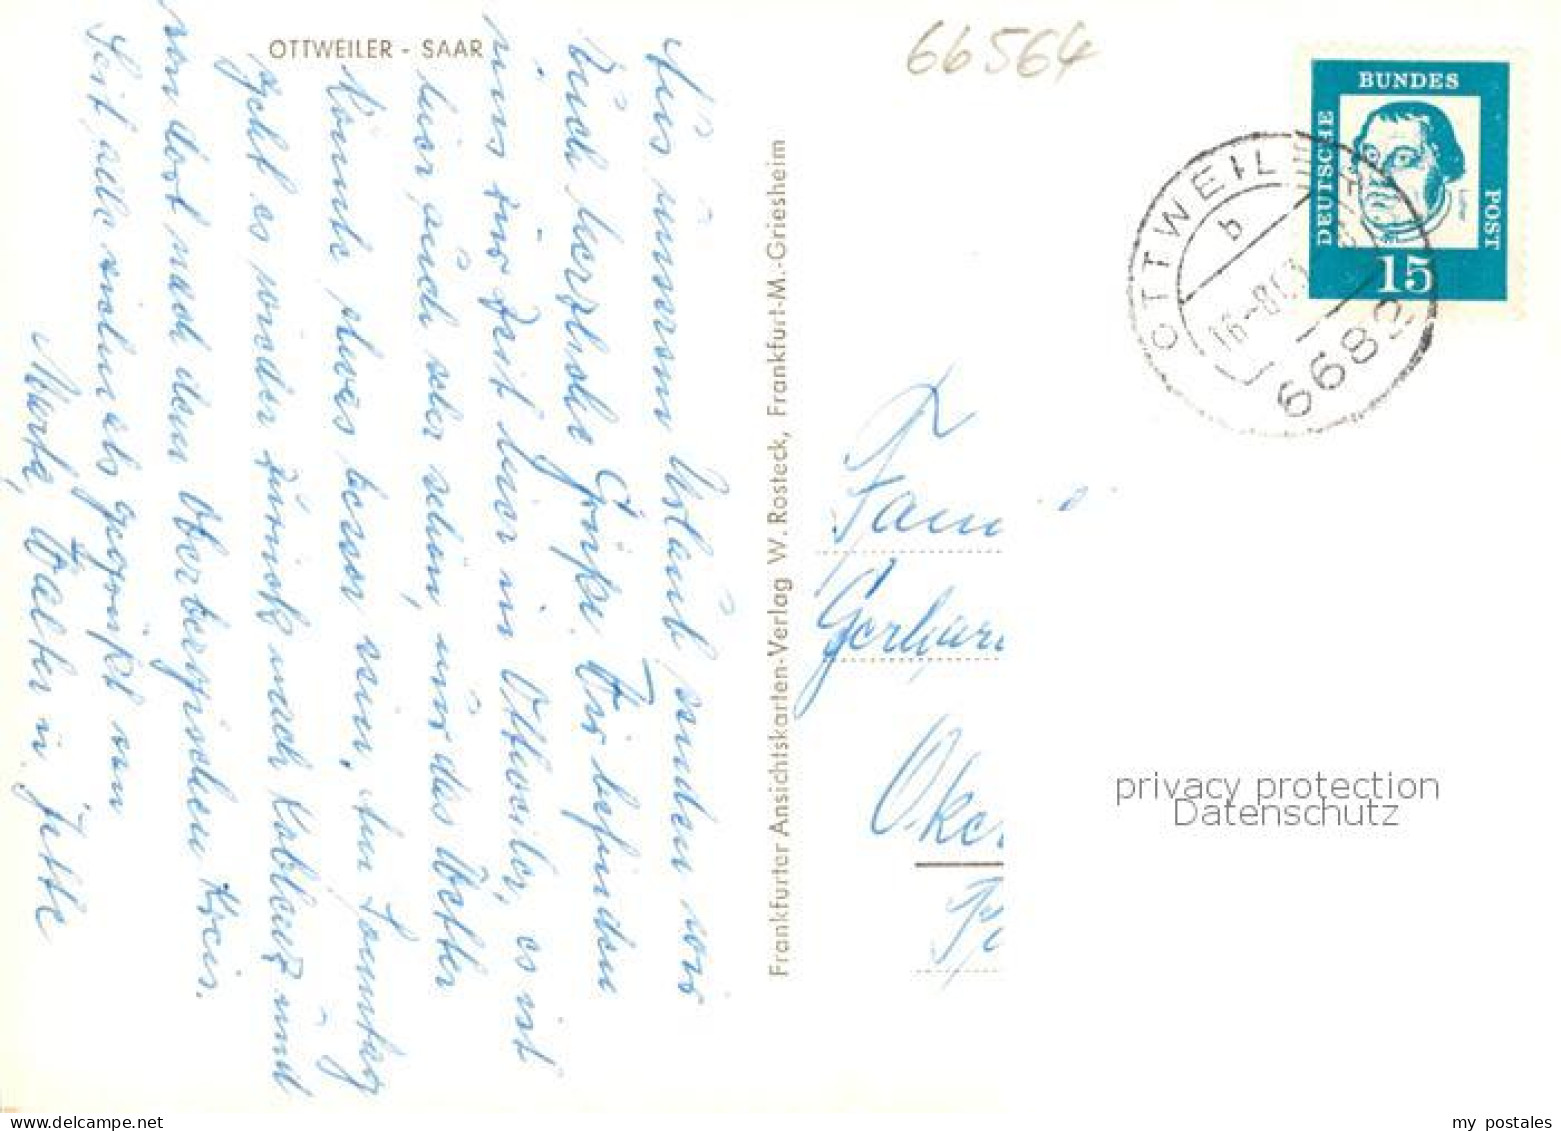 OTTWEILER - SAAR
66564
DEUTSCHE
BUNDES
POST
15
OTTWEIL
b
16.-8.63
6682
Aus unserem Urlaub senden wir
Euch herzliche Grüße. Wir befinden
uns zur Zeit hier in Ottweiler, es ist
hier auch sehr schön, nur das Wetter
könnte etwas besser sein. Am Sonntag
geht es wieder zurück nach Koblenz und
von dort nach dem Oberbergischen Kreis.
Seid alle vielmals gegrüßt von
Marta, Walter u. Jutta
Frankfurter Ansichtskarten-Verlag W. Rosteck, Frankfurt-M.-Griesheim
Fam
Gerhar
Oker
privacy protection
Datenschutz
my postales